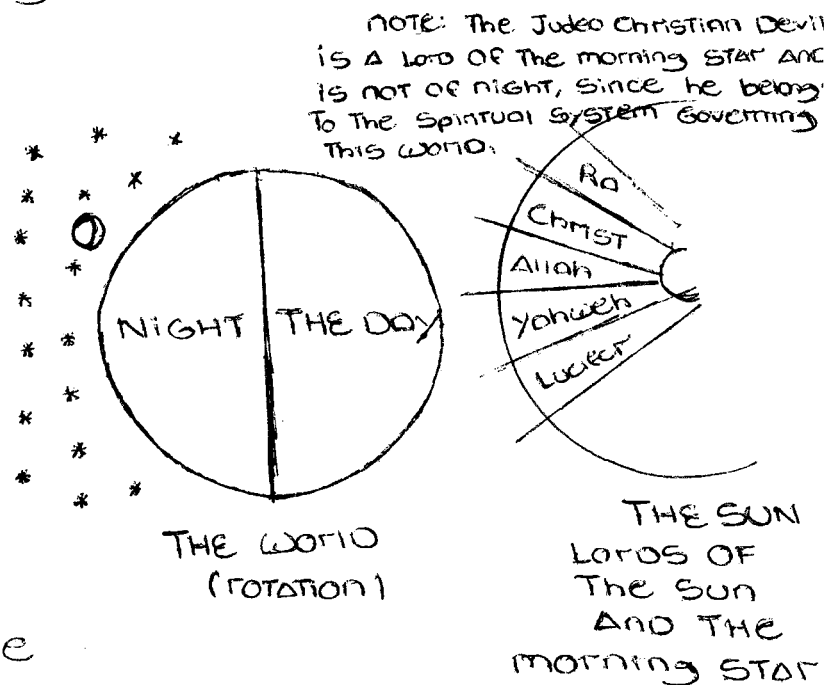 NOTE: The Judeo Christian Devil
is A Lord Of The morning STAr AND
is not OF NiGHT, since he belong
To The Spiritual System Governing
This World.
Ra
Christ
Allah
Yahweh
Lucifer
NiGHT
THE DAY
THE World
(rotation)
THE SUN
Lords OF
The Sun
And THE
morning STAr
e